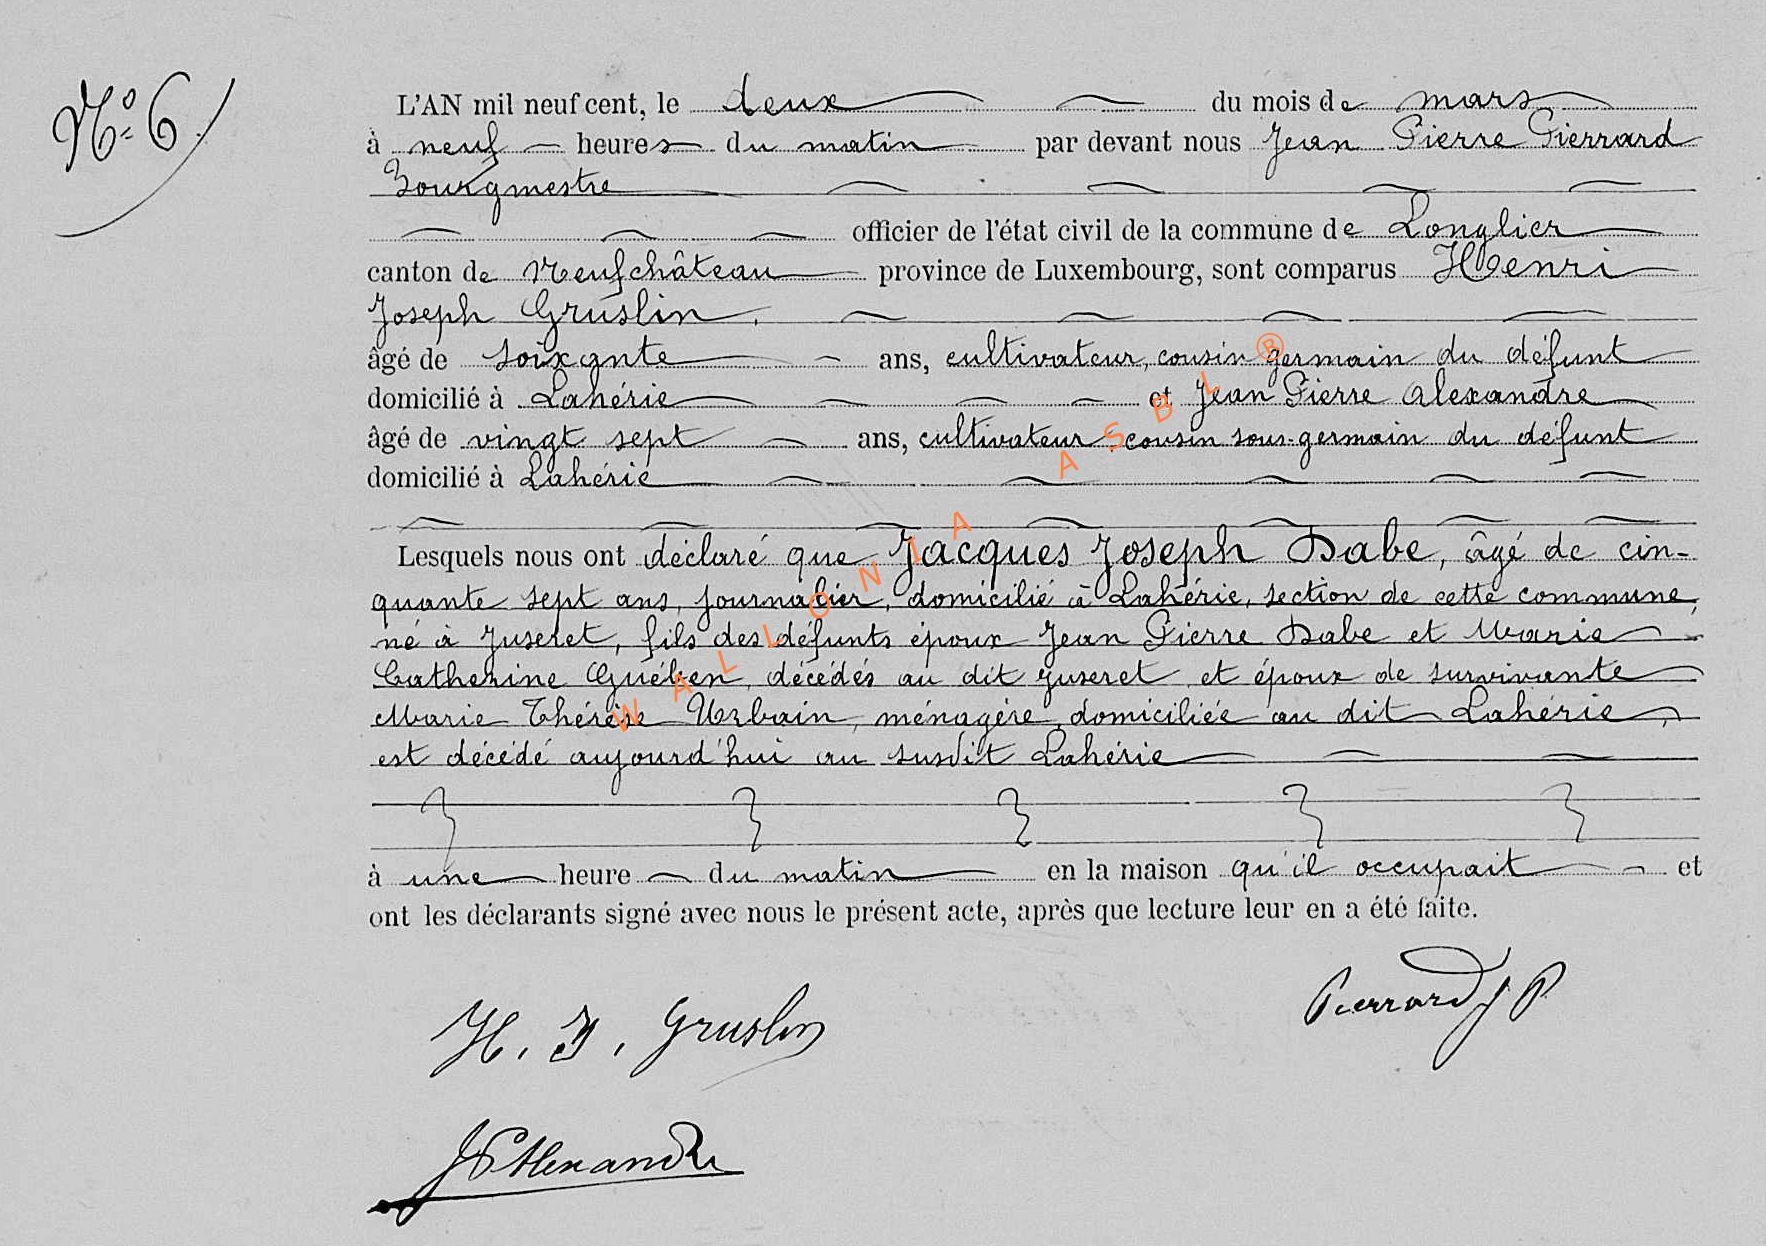 Nº 6.
L'AN mil neuf cent, le deux du mois de mars
à neuf heures du matin par devant nous Jean Pierre Pierrard
Bourgmestre
officier de l'état civil de la commune de Longlier
canton de Neufchâteau province de Luxembourg, sont comparus Henri
Joseph Gruslin,
âgé de soixante ans, cultivateur, cousin germain du défunt
domicilié à Lahérie et Jean Pierre Alexandre
âgé de vingt sept ans, cultivateur cousin sous-germain du défunt
domicilié à Lahérie
Lesquels nous ont déclaré que Jacques Joseph Dabe, âgé de cin-
quante sept ans, journalier, domicilié à Lahérie, section de cette commune,
né à Juseret, fils des défunts époux Jean Pierre Dabe et Marie
Catherine Guében, décédés au dit Juseret, et époux de survivante
Marie Thérèse Urbain, ménagère, domiciliée au dit Lahérie,
est décédé aujourd'hui au susdit Lahérie
à une heure du matin en la maison qu'il occupait et
ont les déclarants signé avec nous le présent acte, après que lecture leur en a été faite.
Pierrard J P
H. J. Gruslin
JP Alexandre
WALLONIA ASBL ®